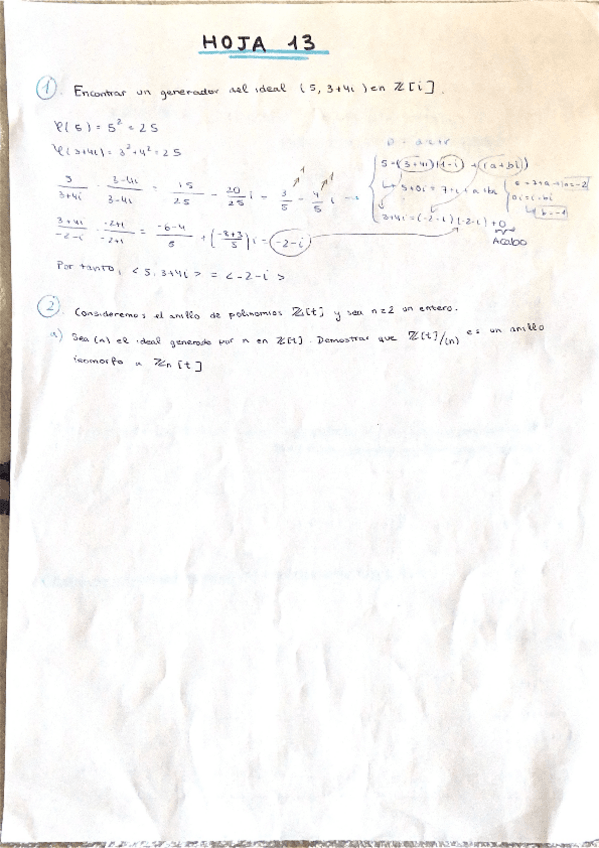 HOJA 13
1. Encontrar un generador del ideal (5, 3+4i) en ℤ[i].
φ(5) = 5² = 25
φ(3+4i) = 3²+4² = 25
5/(3+4i) · (3-4i)/(3-4i) = 15/25 - 20/25 i = 3/5 - 4/5 i
5 = (3+4i)(1-i) + (a+bi)
3+4i = (-2-i)(-2-i) + 0
Acabo
(3+4i)/(-2-i) · (-2+i)/(-2+i) = (-6-4)/5 + ((-8+3)/5) i = -2-i
Por tanto, <5, 3+4i> = <-2-i>
2. Consideremos el anillo de polinomios ℤ[t] y sea n≥2 un entero.
a) Sea (n) el ideal generado por n en ℤ[t]. Demostrar que ℤ[t]/(n) es un anillo
isomorfo a ℤn[t]